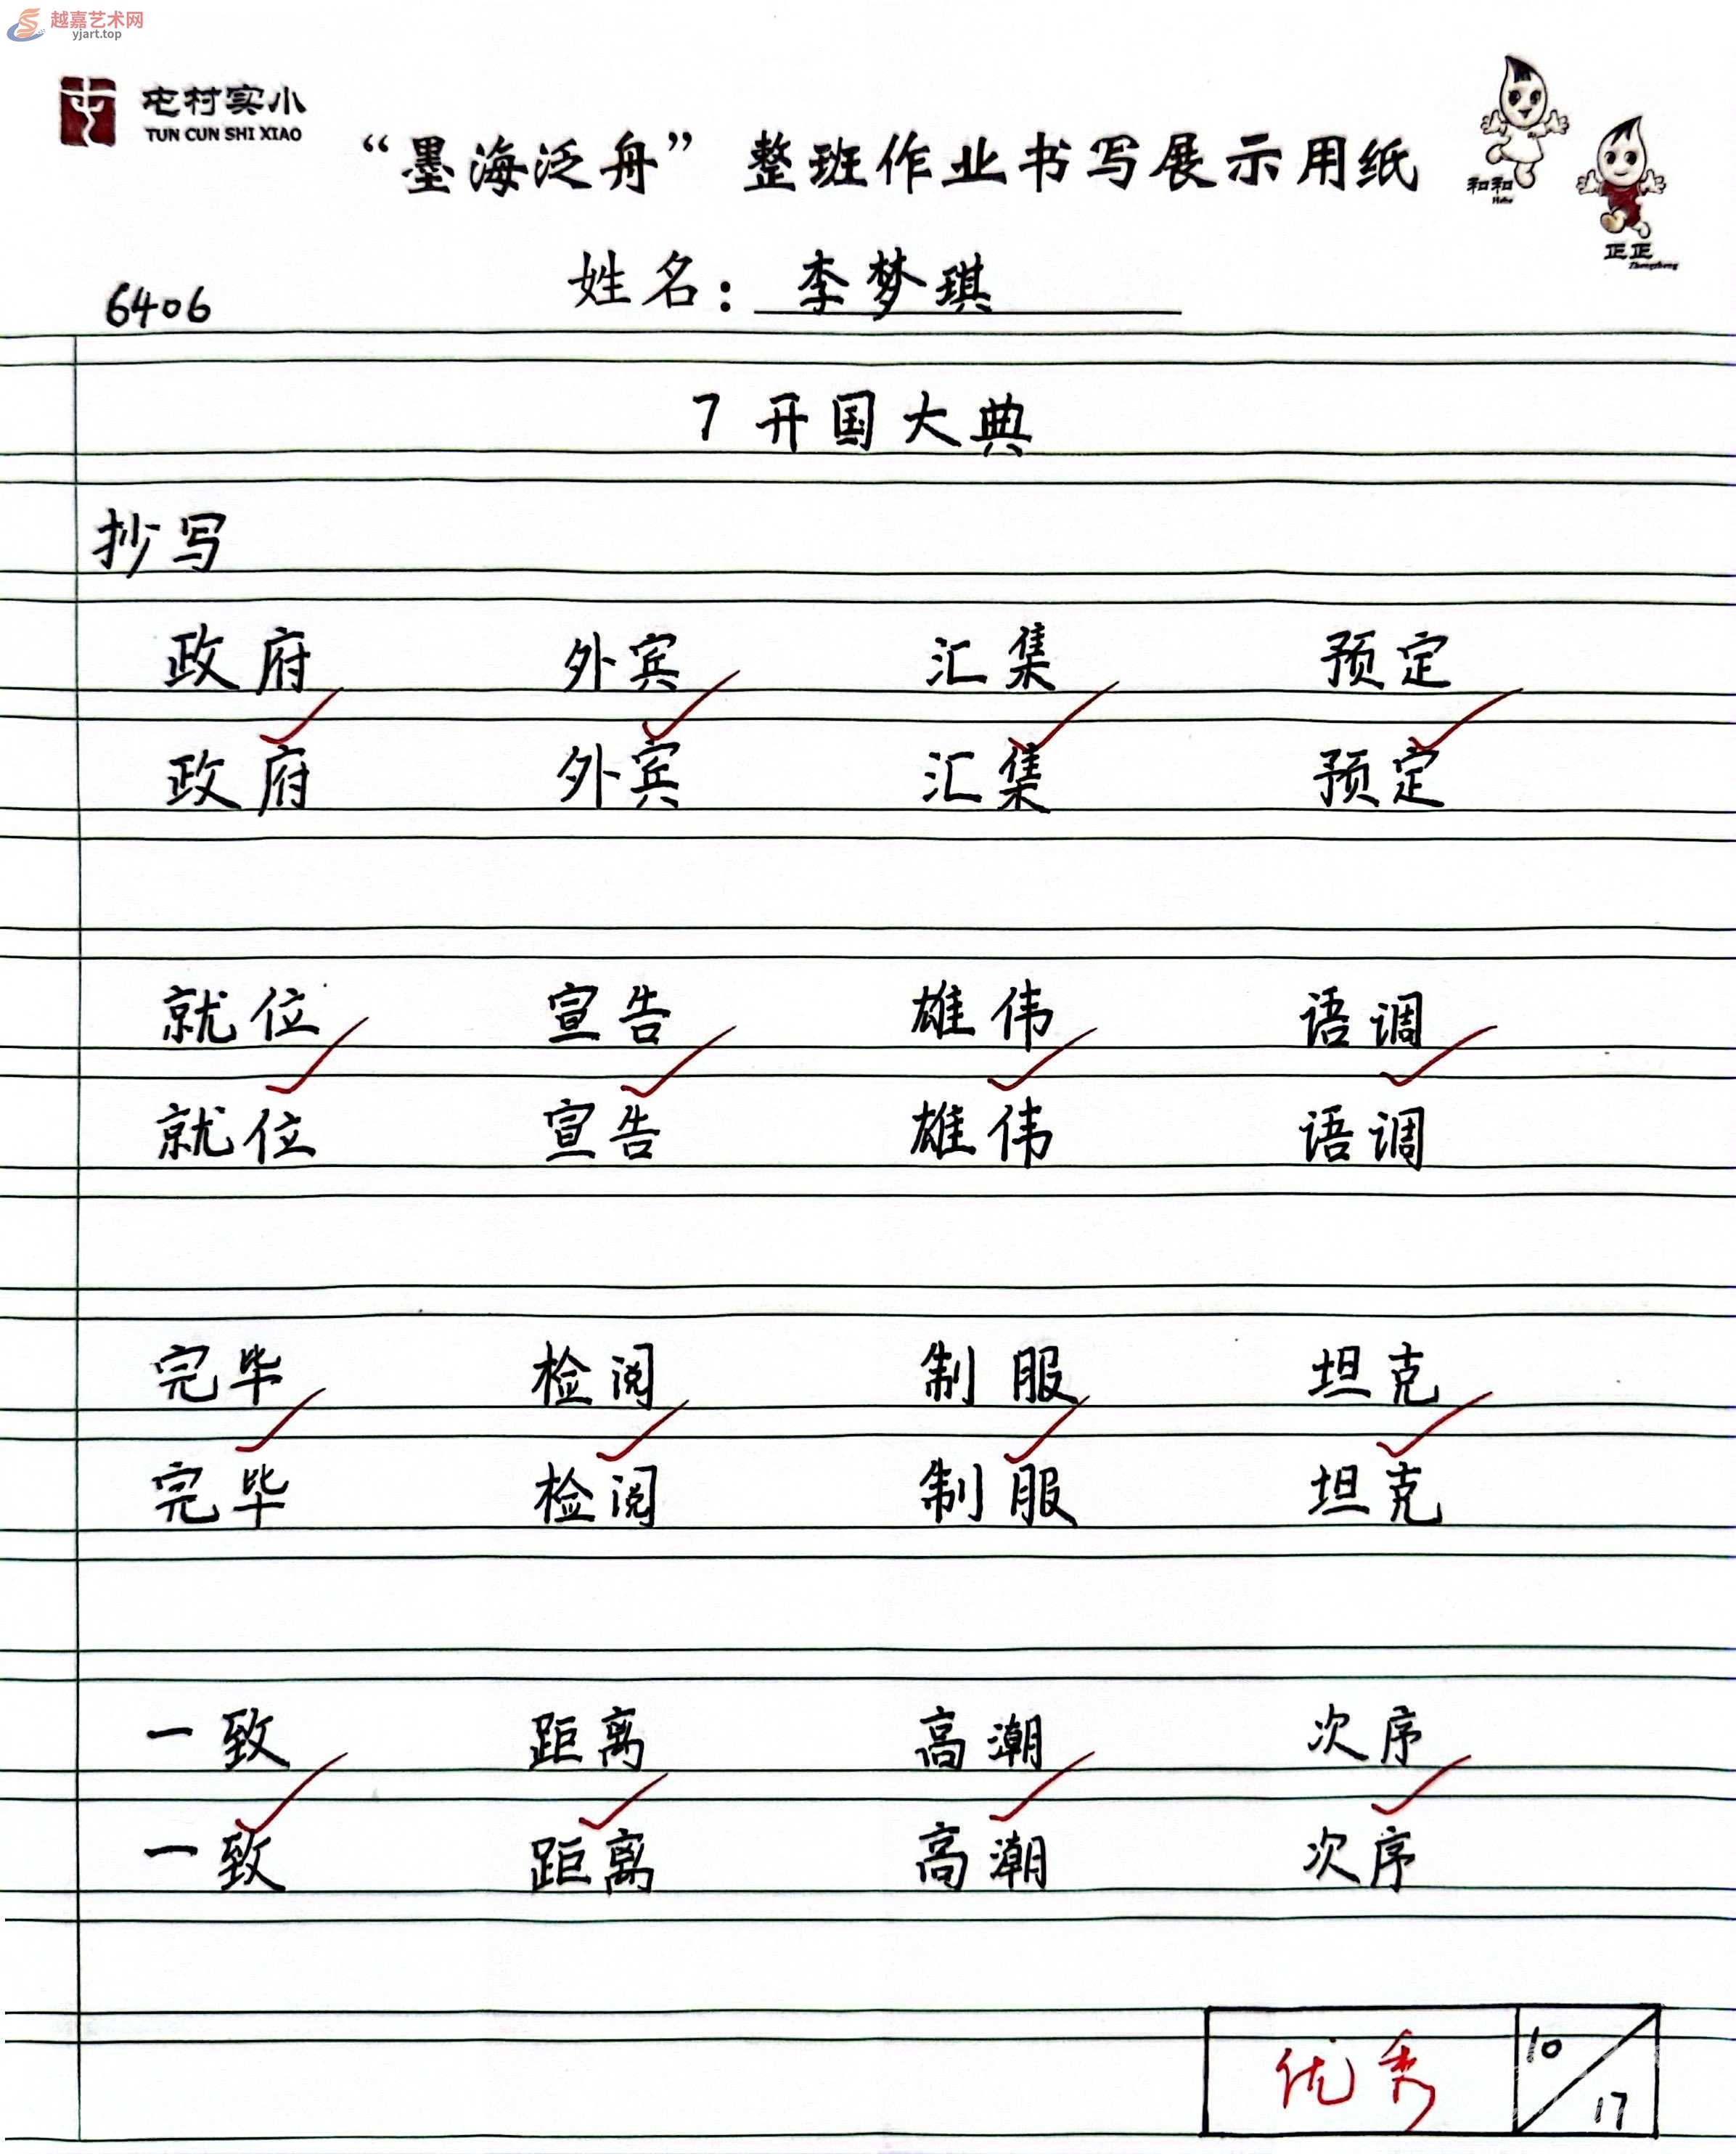 越嘉艺术网
yjart.top
屯村实小
TUN CUN SHI XIAO
“墨海泛舟”整班作业书写展示用纸
和和
Hehe
正正
Zhengzheng
6406 姓名：李梦琪
7 开国大典
抄写
政府 外宾 汇集 预定
政府 外宾 汇集 预定
就位 宣告 雄伟 语调
就位 宣告 雄伟 语调
完毕 检阅 制服 坦克
完毕 检阅 制服 坦克
一致 距离 高潮 次序
一致 距离 高潮 次序
优秀 10/17